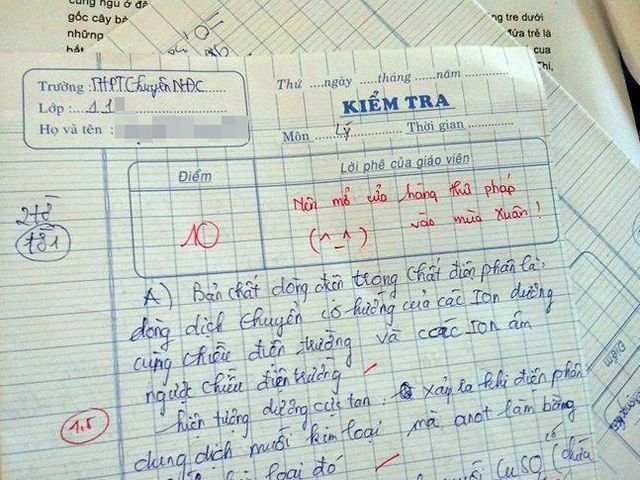 cùng ngủ ở đâ
gốc cây bà
những
bất
ng tre dưới
đứa trẻ là
cua
Thi,
Trường : THPT Chuyên NĐC
Lớp : 11
Họ và tên :
Thứ ....ngày .....tháng ......năm
KIỂM TRA
Môn Lý Thời gian
Điểm
Lời phê của giáo viên
10
Nên mở cửa hàng thư pháp
(^_^) vào mùa Xuân !
2tờ
A) Bản chất dòng điện trong chất điện phân là:
dòng dịch chuyển có hướng của các Ion dương
cùng chiều điện trường và các Ion âm
ngược chiều điện trường
1.5
hiện tượng dương cực tan : xảy ra khi điện phân
dung dịch muối kim loại mà anot làm bằng
loại đó
muối CuSO4 (chứa